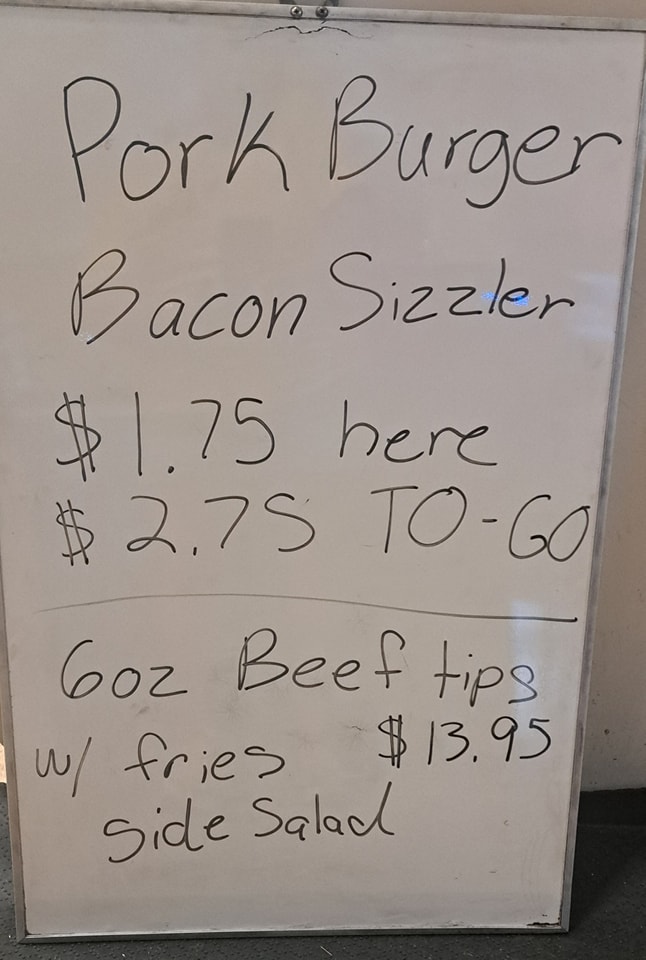 Pork Burger
Bacon Sizzler
$1.75 here
$2.75 TO-GO
6oz Beef tips
w/ fries $13.95
side Salad